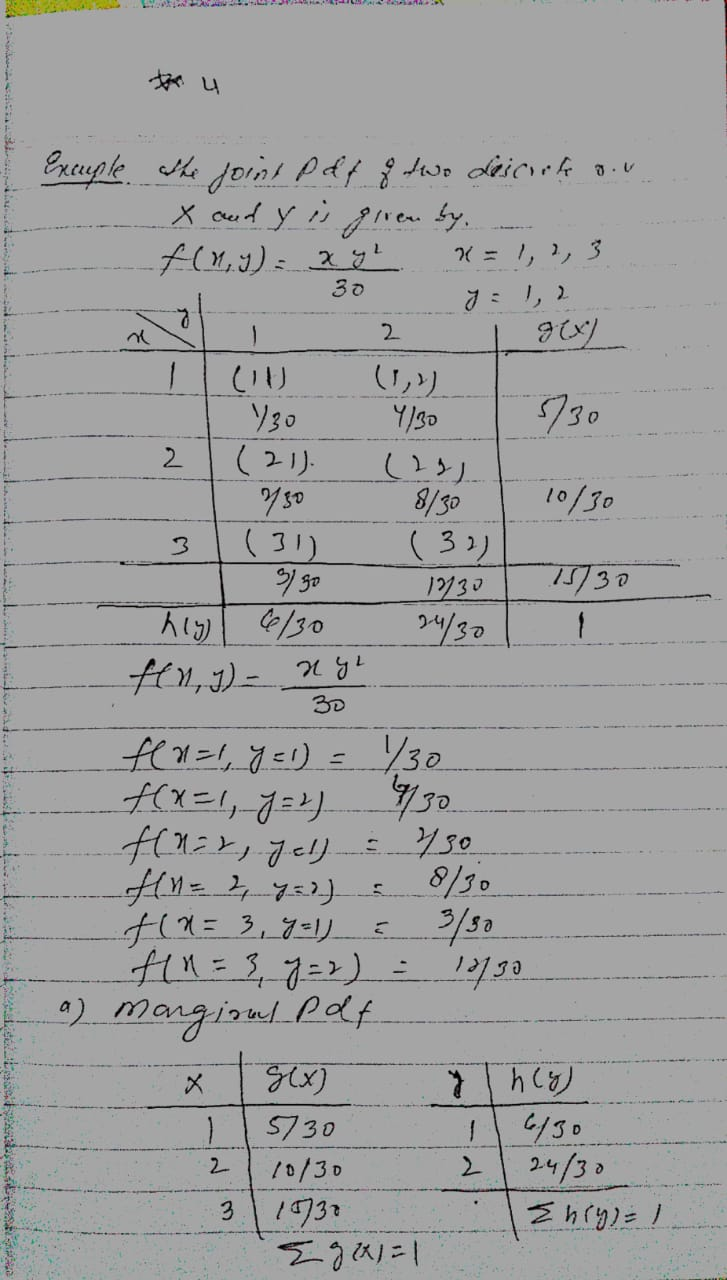 4
Example the joint Pdf of two discrete r.v
X and y is given by.
f(x,y) = xy²/30 x = 1, 2, 3
y = 1, 2
x y 1 2 g(x)
1 (11) (1,2)
1/30 4/30 5/30
2 (21). (22)
2/30 8/30 10/30
3 (31) (32)
3/30 12/30 15/30
h(y) 6/30 24/30 1
f(x,y) = xy²/30
f(x=1, y=1) = 1/30
f(x=1, y=2) 4/30
f(x=2, y=1) = 2/30
f(x=2, y=2) = 8/30
f(x=3, y=1) = 3/30
f(x=3, y=2) = 12/30
a) Marginal Pdf
x g(x) y h(y)
1 5/30 1 6/30
2 10/30 2 24/30
3 15/30 Σh(y)=1
Σg(x)=1